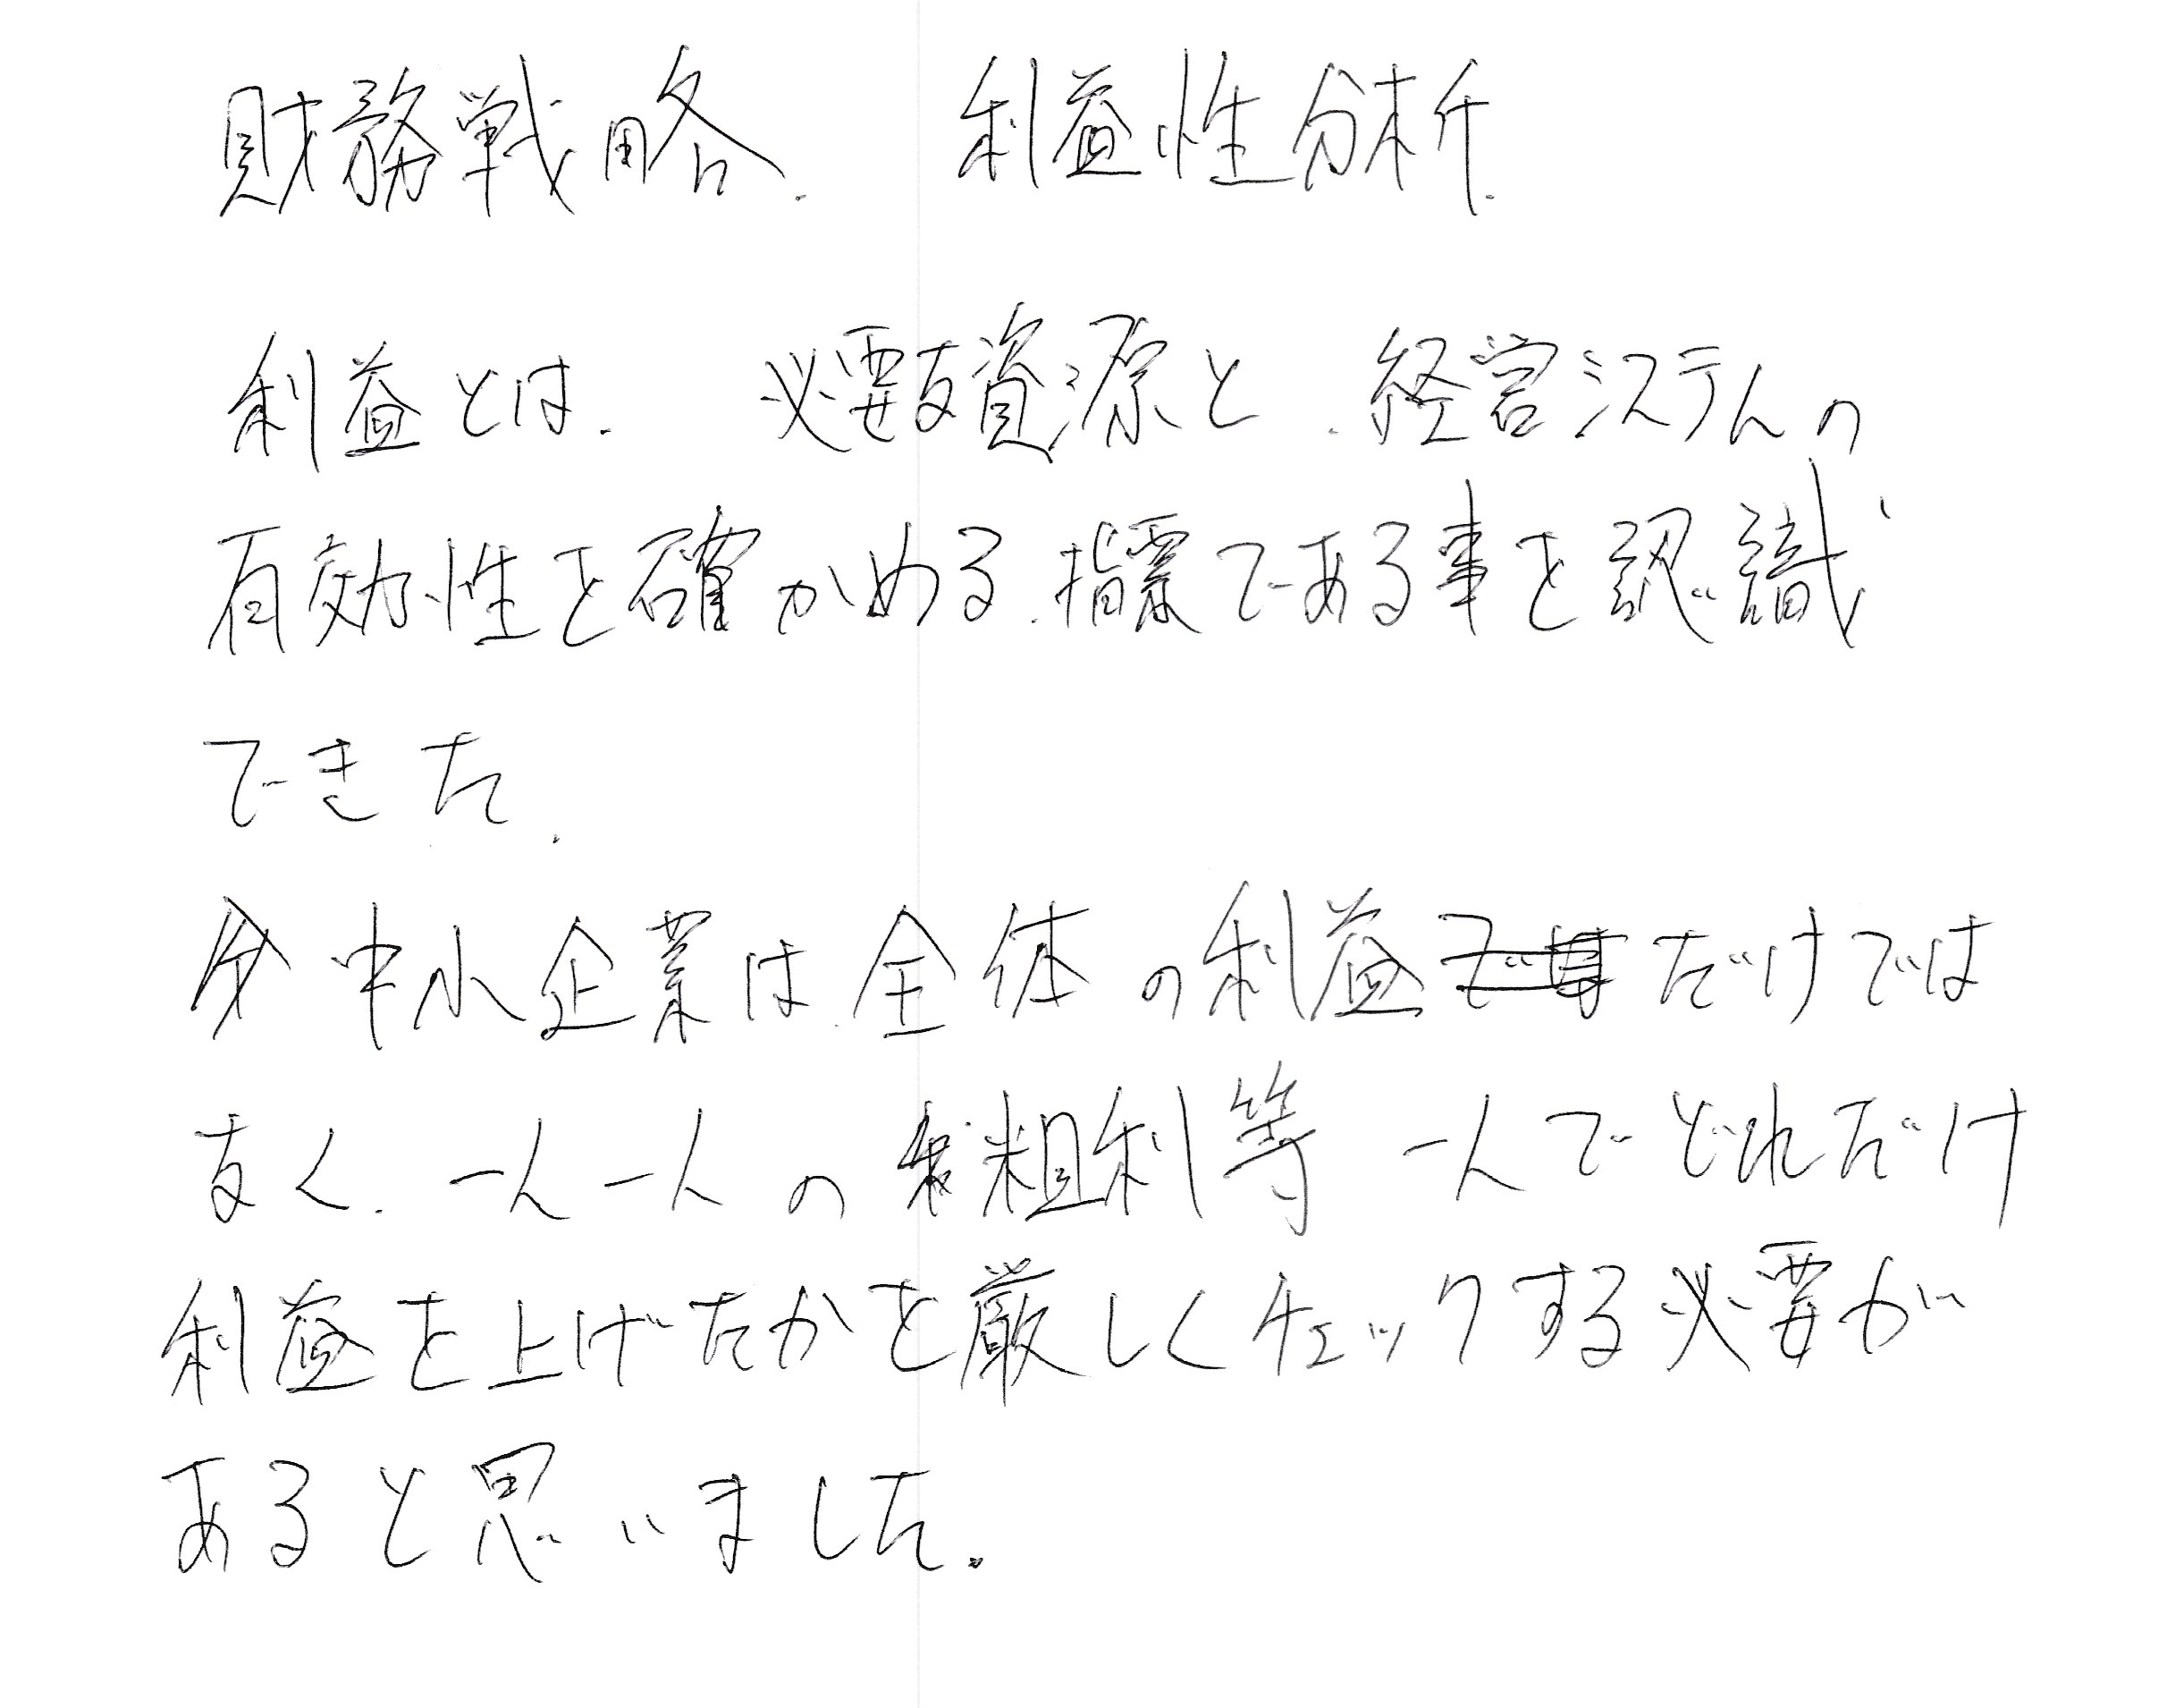 財務戦略. 利益性分析.
利益とは. 必要な資源と.経営システムの
有効性を確かめる.指標である事を認識
できた.
今中小企業は.全体の利益だけでは
なく.一人一人の粗利等 一人でどれだけ
利益を上げたかを厳しくチェックする必要が
あると思いました。